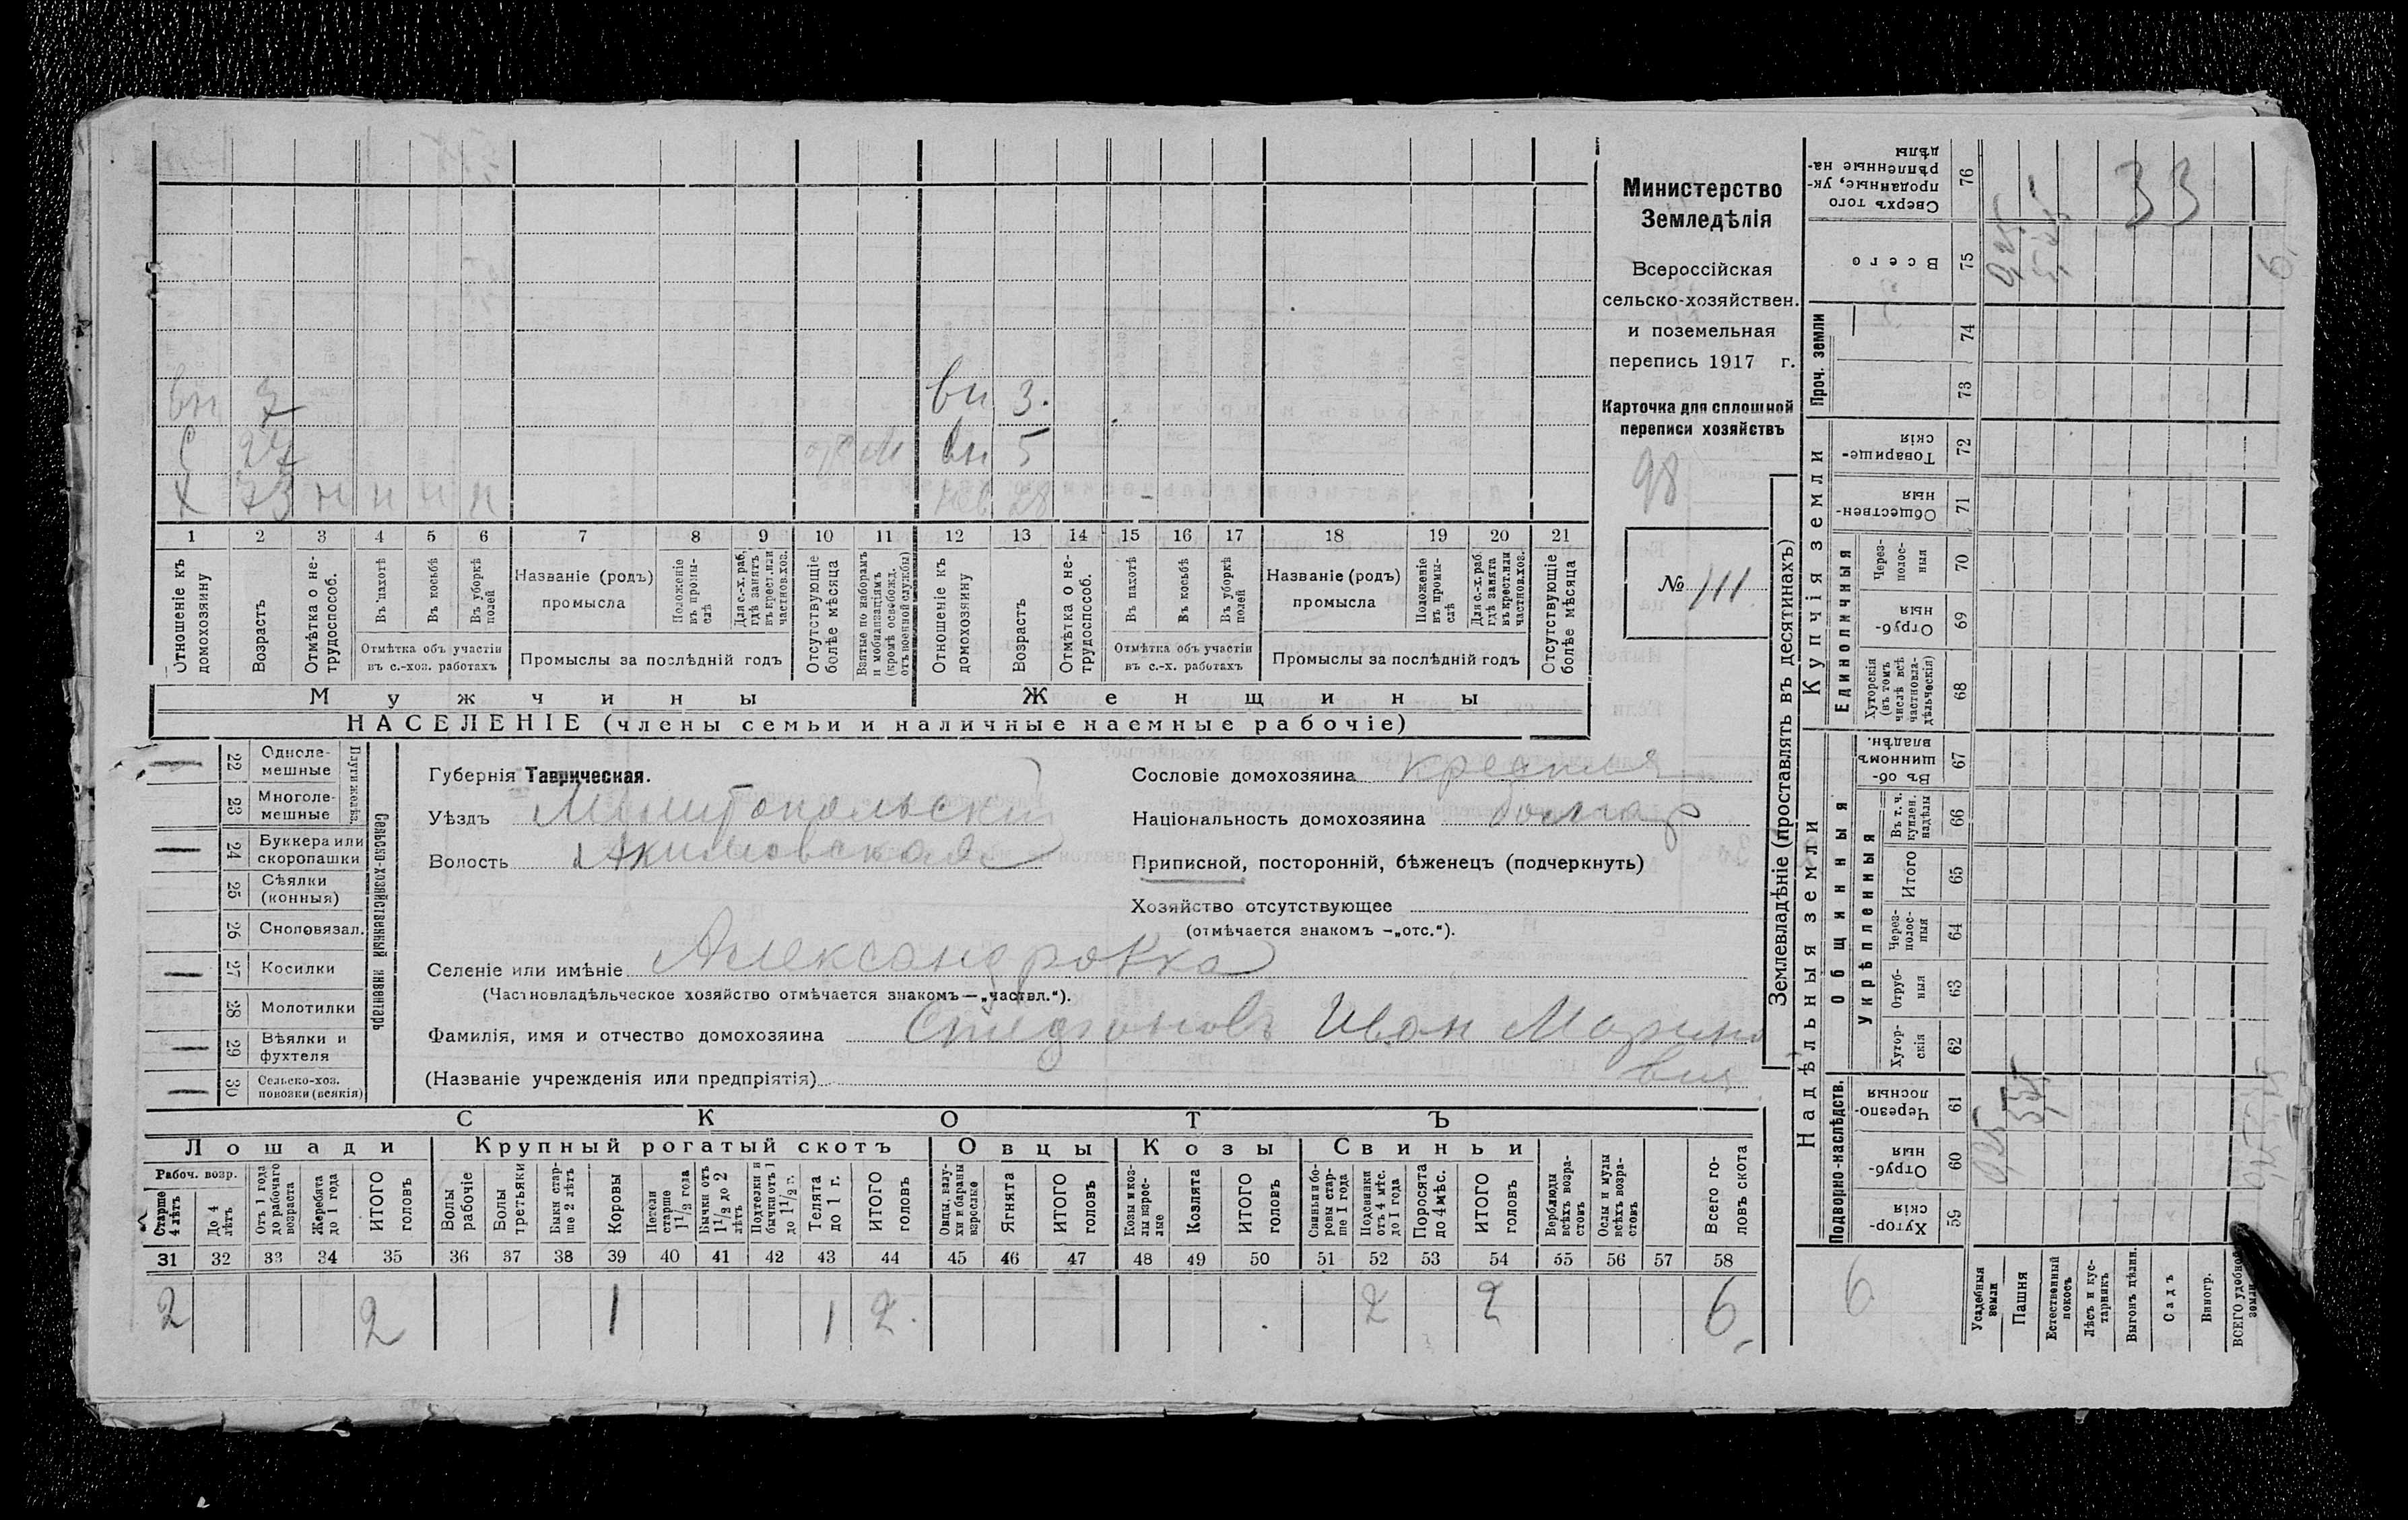 вн 7 вн 3.
С 27 вн 5
Х 73 н н н н нев 28
1 2 3 4 5 6 7 8 9 10 11 12 13 14 15 16 17 18 19 20 21
Отношеніе къ домохозяину
Возрастъ
Отмѣтка о нетрудоспособ.
Въ пахотѣ
Въ косьбѣ
Въ уборкѣ полей
Отмѣтка объ участіи въ с.-хоз. работахъ
Названіе (родъ) промысла
Положеніе въ промыслѣ
Для с.-х. раб. гдѣ занятъ въ крест. или частнов. хоз.
Промыслы за послѣдній годъ
Отсутствующіе болѣе мѣсяца
Взятые по наборамъ и мобилизаціямъ (кромѣ освобожд. отъ военной службы)
Отношеніе къ домохозяину
Возрастъ
Отмѣтка о нетрудоспособ.
Въ пахотѣ
Въ косьбѣ
Въ уборкѣ полей
Отмѣтка объ участіи въ с.-х. работахъ
Названіе (родъ) промысла
Положеніе въ промыслѣ
Для с.-х. раб. гдѣ занята въ крест. или частнов. хоз.
Промыслы за послѣдній годъ
Отсутствующіе болѣе мѣсяца
Мужчины
Женщины
НАСЕЛЕНІЕ (члены семьи и наличные наемные рабочіе)
Министерство
Земледѣлія
Всероссійская
сельско-хозяйствен.
и поземельная
перепись 1917 г.
Карточка для сплошной
переписи хозяйствъ
98
№ 111
22 Одноле-мешные
23 Многоле-мешные
24 Буккера или скоропашки
25 Сѣялки (конныя)
26 Сноповязал.
27 Косилки
28 Молотилки
29 Вѣялки и фухтеля
30 Сельско-хоз. повозки (всякія)
Сельско-хозяйственный инвентарь
Губернія Таврическая.
Уѣздъ Мелитопольскій
Волость Акимовская
Сословіе домохозяина
Національность домохозяина болгар
Приписной, посторонній, бѣженецъ (подчеркнуть)
Хозяйство отсутствующее
(отмѣчается знакомъ —„отс.“).
Селеніе или имѣніе Александровка
(Частновладѣльческое хозяйство отмѣчается знакомъ—„частвл.“).
Фамилія, имя и отчество домохозяина Иван Марино
вич
(Названіе учрежденія или предпріятія)
СКОТЪ
Лошади Крупный рогатый скотъ Овцы Козы Свиньи
Рабоч. возр.
Старше 4 лѣтъ
До 4 лѣтъ
Отъ 1 года до рабочаго возраста
Жеребята до 1 года
ИТОГО головъ
Волы рабочіе
Волы третьяки
Быки старше 2 лѣтъ
Коровы
Нетели старше 1 1/2 года
Бычки отъ 1 1/2 до 2 лѣтъ
Подтелки и бычки отъ 1 до 1 1/2 г.
Телята до 1 г.
ИТОГО головъ
Овцы, валухи и бараны взрослые
Ягнята
ИТОГО головъ
Козы и козлы взрослые
Козлята
ИТОГО головъ
Свиньи и боровы старше 1 года
Подсвинки отъ 4 мѣс. до 1 года
Поросята до 4 мѣс.
ИТОГО головъ
Верблюды всѣхъ возрастовъ
Ослы и мулы всѣхъ возрастовъ
Всего головъ скота
31 32 33 34 35 36 37 38 39 40 41 42 43 44 45 46 47 48 49 50 51 52 53 54 55 56 57 58
2 2 1 1 2. 2 2 6
Землевладѣніе (проставлять въ десятинахъ)
Надѣльныя земли
Купчія земли
Подворно-наслѣдств.
Общинныя
Укрѣпленныя
Единоличныя
Проч. земли
Сверхъ того проданные, укрѣпленные надѣлы 76
Всего 75
74
73
Товарищескія 72
Общественныя 71
Черезполосныя 70
Отрубныя 69
Хуторскія (въ томъ числѣ всѣ частновладѣльческія) 68
Въ общинномъ владѣн. 67
Въ т. ч. куплен. надѣлы 66
Итого 65
Черезполосныя 64
Отрубныя 63
Хуторскія 62
Черезполосныя 61
Отрубныя 60
Хуторскія 59
33
6
Усадебныя земли
Пашня
Естественный покосъ
Лѣсъ и кустарникъ
Выгонъ дѣлин.
Садъ
Виногр.
ВСЕГО удобной земли